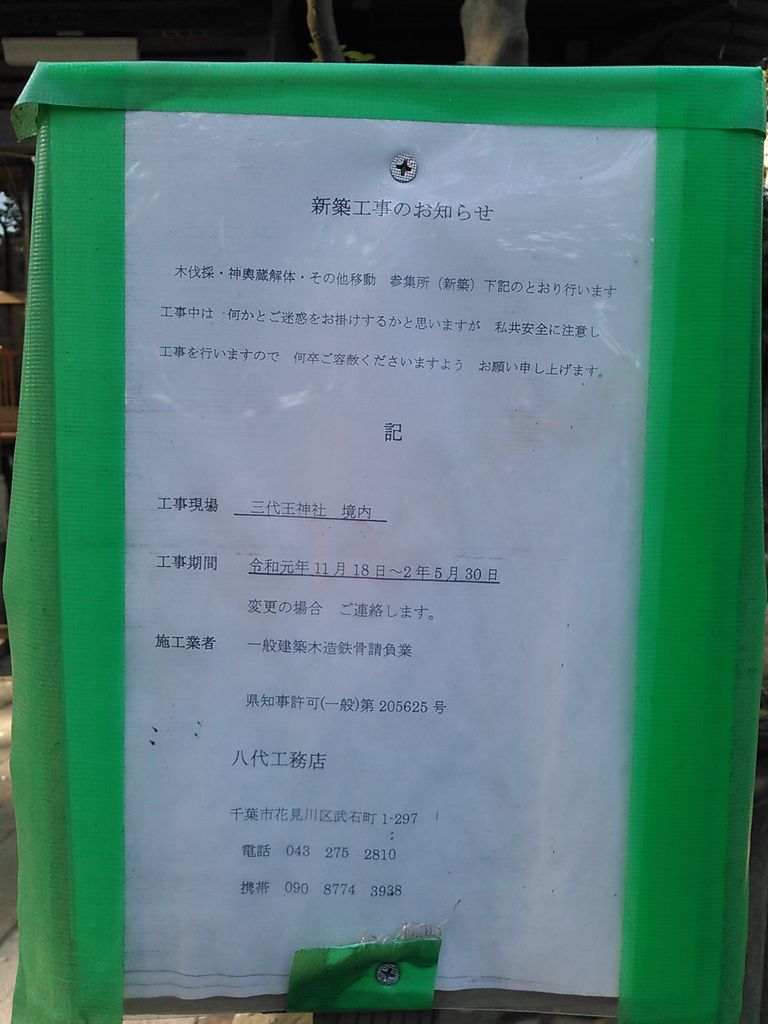 新築工事のお知らせ
木伐採・神輿蔵解体・その他移動　参集所（新築）下記のとおり行います
工事中は　何かとご迷惑をお掛けするかと思いますが　私共安全に注意し
工事を行いますので　何卒ご容赦くださいますよう　お願い申し上げます。
記
工事現場　三代王神社　境内
工事期間　令和元年11月18日～2年5月30日
変更の場合　ご連絡します。
施工業者　一般建築木造鉄骨請負業
県知事許可(一般)第205625号
八代工務店
千葉市花見川区武石町1-297
電話　043　275　2810
携帯　090　8774　3938